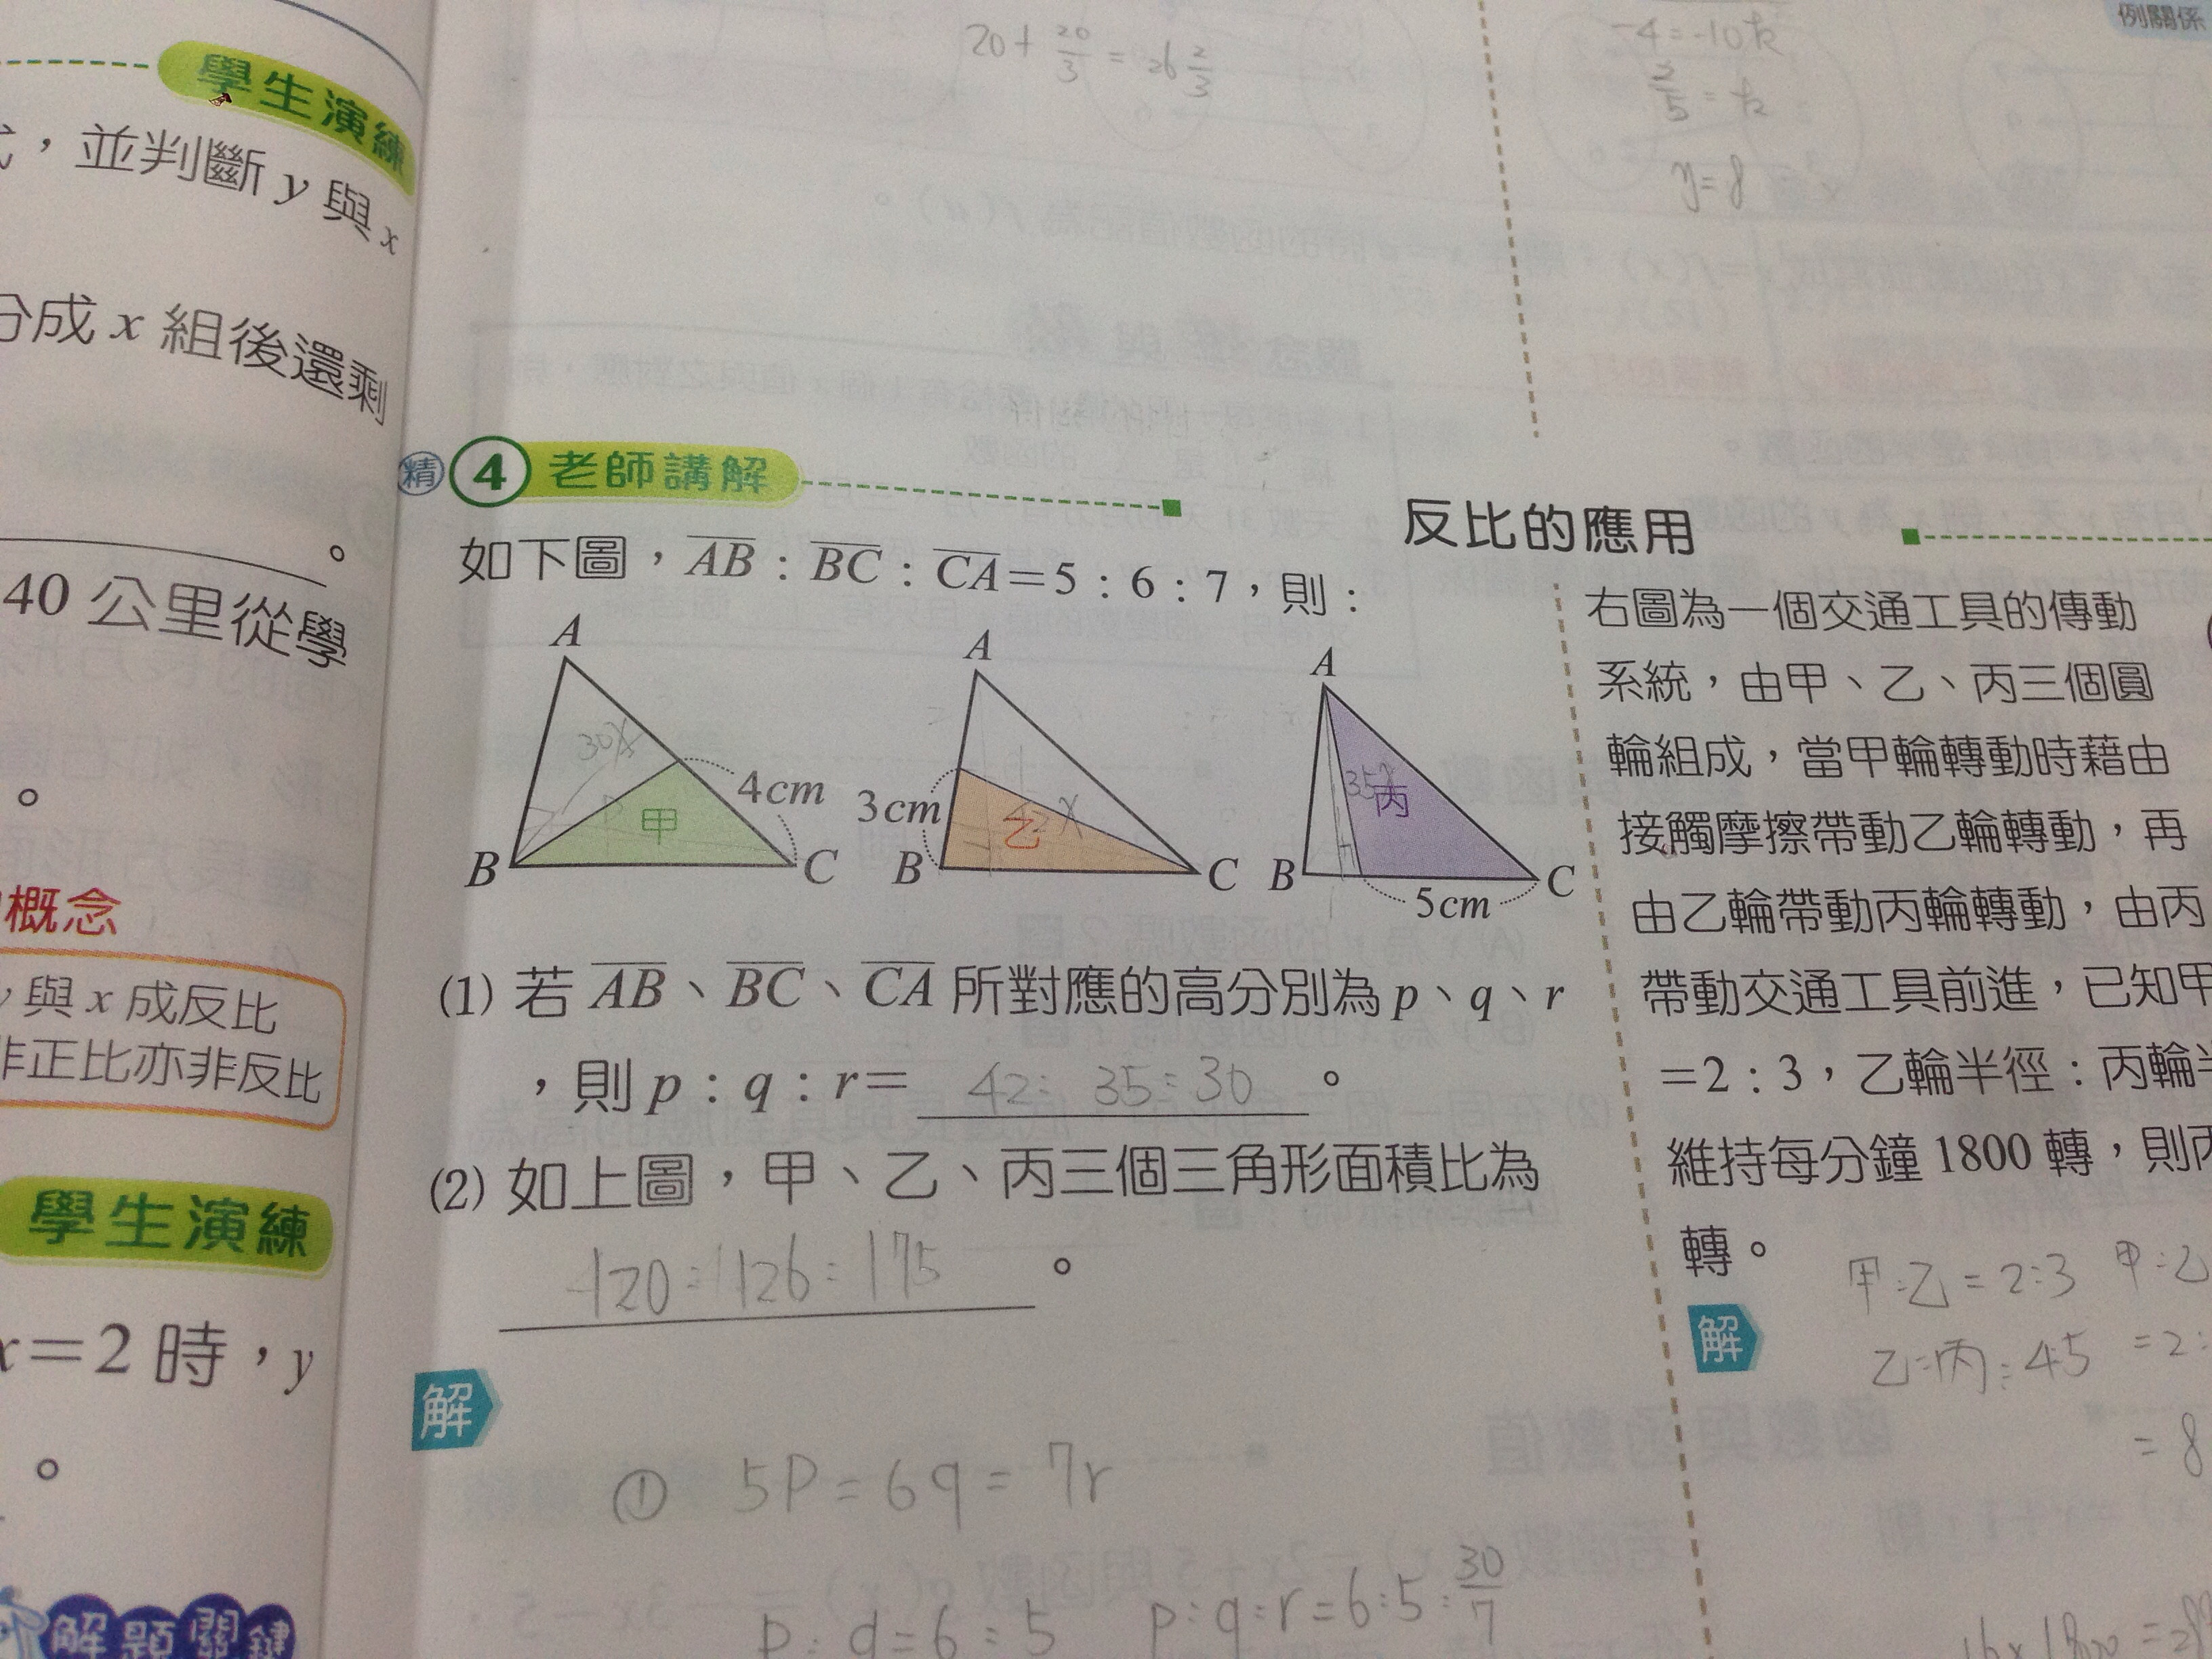 學生演練
，並判斷 y 與 x
分成 x 組後還剩
。
40 公里從學
。
概念
y 與 x 成反比
非正比亦非反比
學生演練
x=2 時，y
。
解題關鍵
20+ 20/3 = 26 2/3
精 4 老師講解
如下圖，AB：BC：CA=5：6：7，則：
A A A
30x 4cm 3cm 35x
甲 乙 42x 丙
B C B C B C
5cm
(1) 若 AB、BC、CA 所對應的高分別為 p、q、r
，則 p：q：r= 42：35：30 。
(2) 如上圖，甲、乙、丙三個三角形面積比為
120：126：175 。
解
① 5P=6q=7r
p：q=6：5 p：q：r=6：5：30/7
例關係
-4=-10k
2/5=k
y=8
反比的應用
右圖為一個交通工具的傳動
系統，由甲、乙、丙三個圓
輪組成，當甲輪轉動時藉由
接觸摩擦帶動乙輪轉動，再
由乙輪帶動丙輪轉動，由丙
帶動交通工具前進，已知甲
=2：3，乙輪半徑：丙輪半
維持每分鐘 1800 轉，則丙
轉。
甲：乙=2：3 甲：乙
解 乙：丙=4：5 =2：
=8
16×1800=28